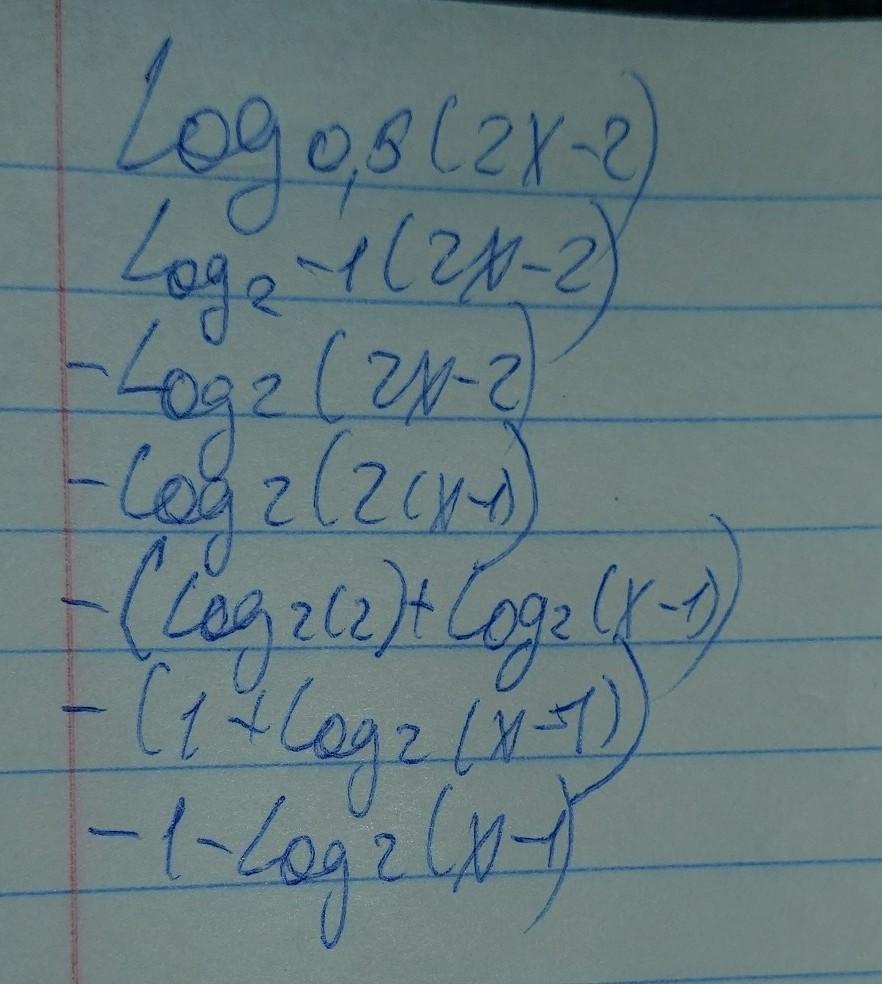 Log 0,5 (2x-2)
Log₂ -1 (2x-2)
- Log 2 (2x-2)
- Log 2 (2(x-1)
- (Log 2(2)+Log₂ (x-1))
- (1+Log 2 (x-1))
-1-Log 2 (x-1)